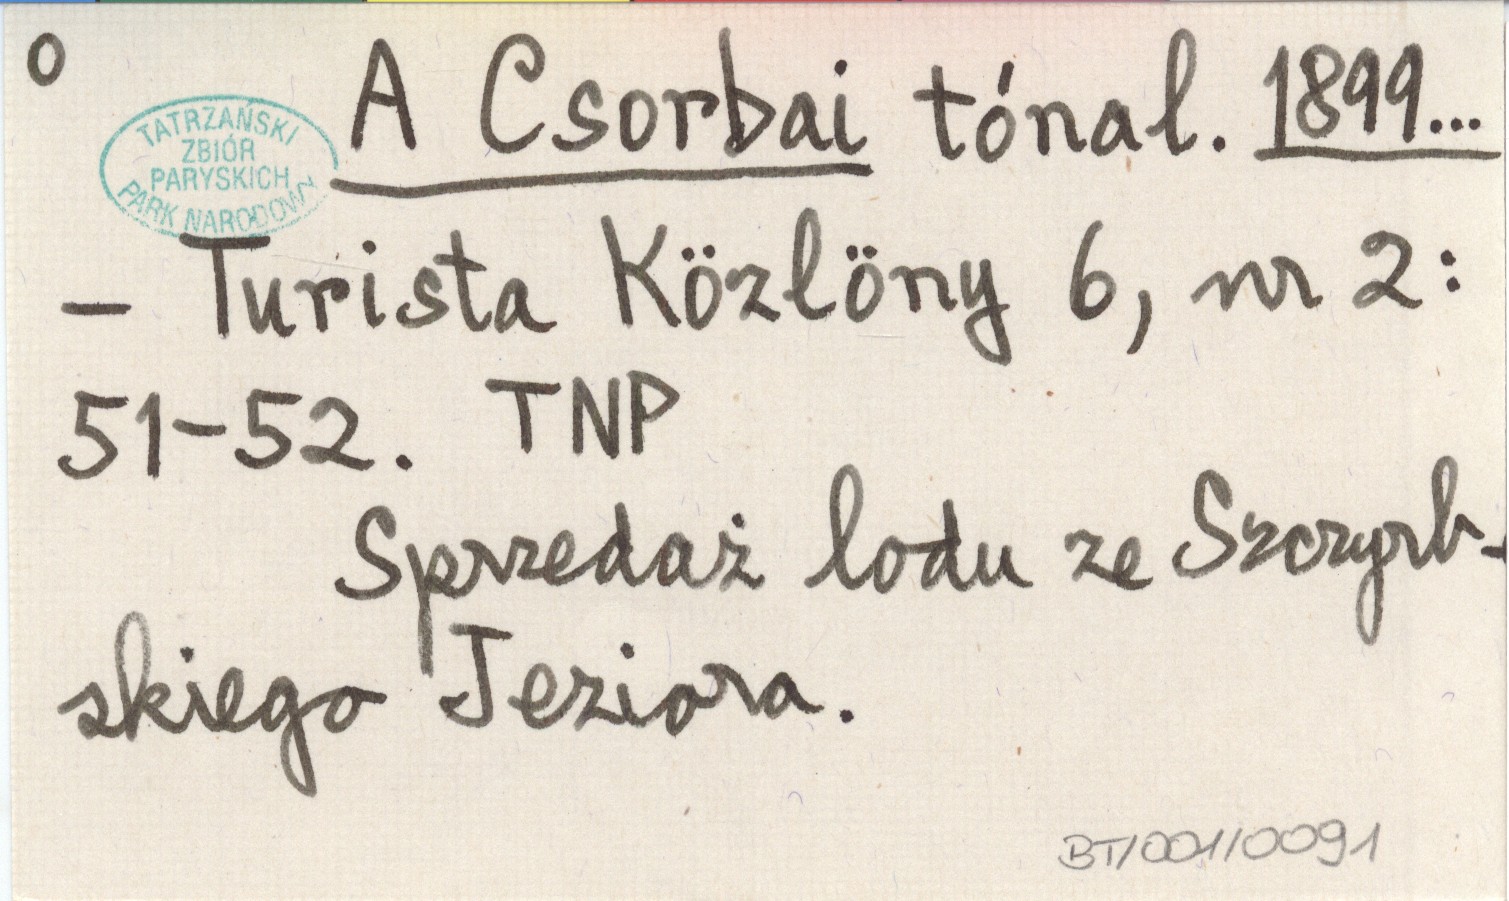 0 A Csorbai tónal. 1899...
TATRZAŃSKI
ZBIÓR
PARYSKICH
PARK NARODOWY
– Turista Közlöny 6, nr 2:
51–52. TNP
Sprzedaż lodu ze Szczyrb-
skiego Jeziora.
BT/001/0091